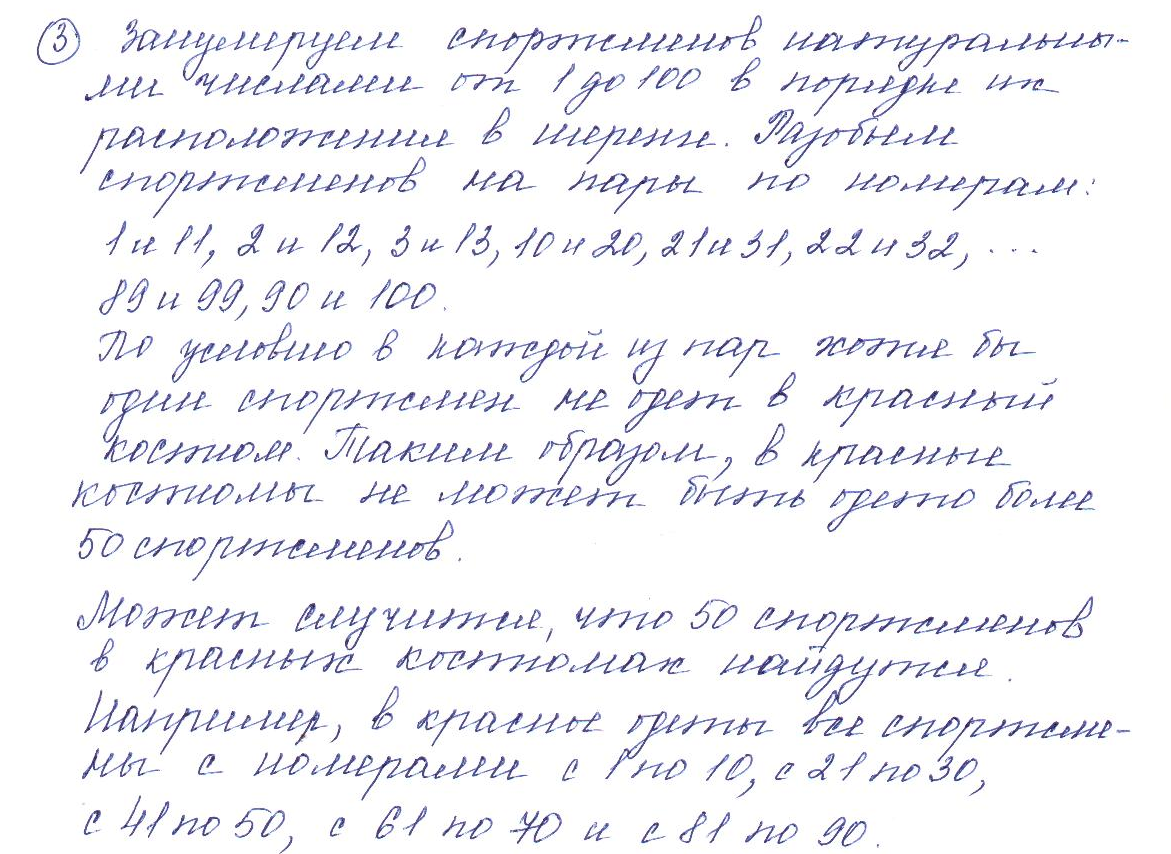 ③ Занумеруем спортсменов натуральны-
ми числами от 1 до 100 в порядке их
расположения в шеренге. Разобьем
спортсменов на пары по номерам:
1 и 11, 2 и 12, 3 и 13, 10 и 20, 21 и 31, 22 и 32, ...
89 и 99, 90 и 100.
По условию в каждой из пар хотя бы
один спортсмен не одет в красный
костюм. Таким образом, в красные
костюмы не может быть одето более
50 спортсменов.
Может случится, что 50 спортсменов
в красных костюмах найдутся.
Например, в красное одеты все спортсме-
ны с номерами с 1 по 10, с 21 по 30,
с 41 по 50, с 61 по 70 и с 81 по 90.